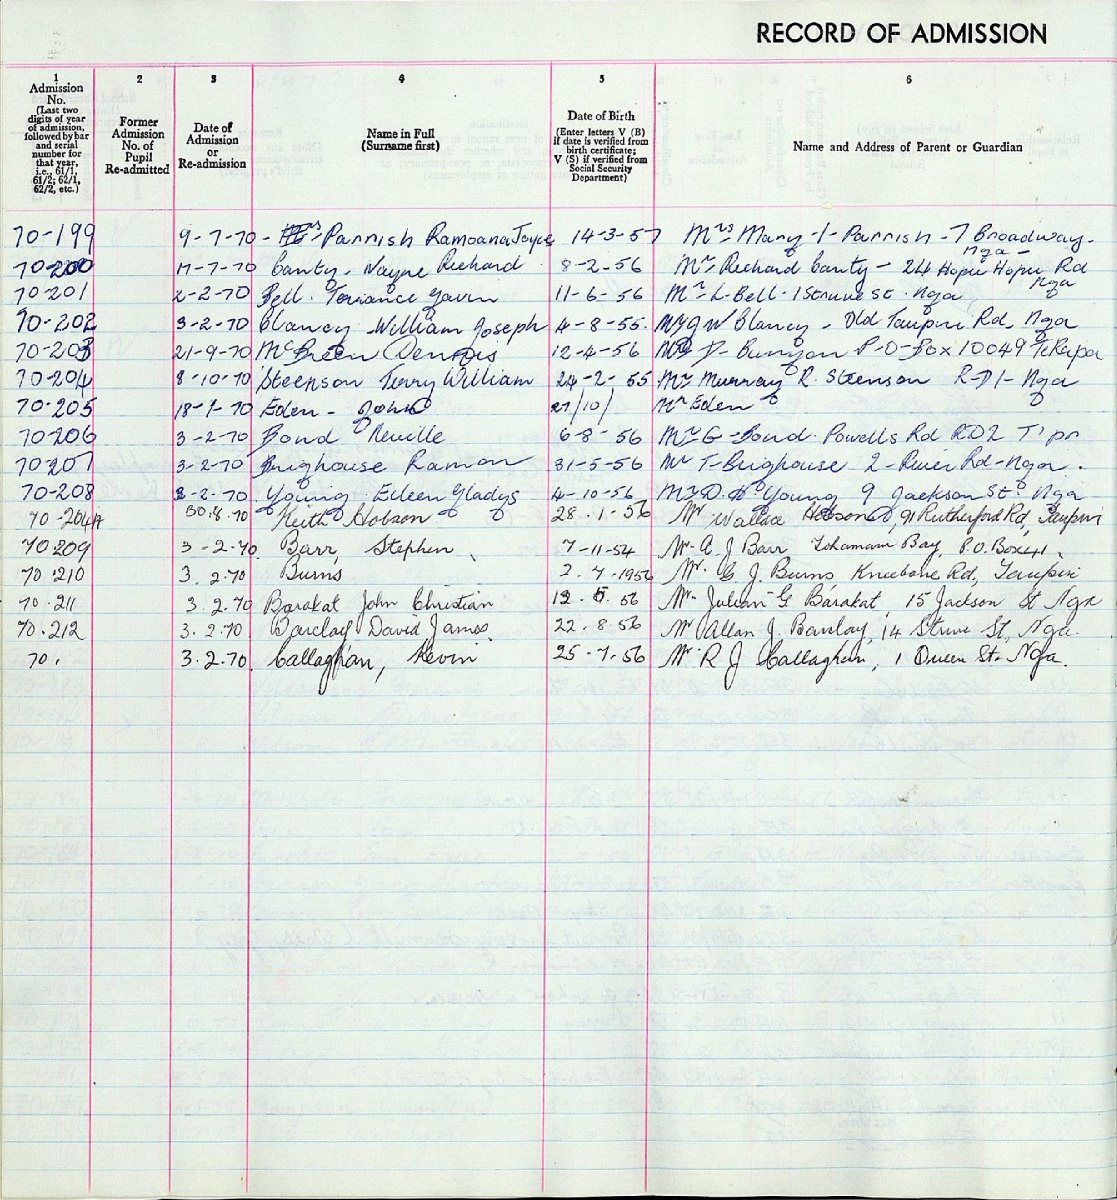 RECORD OF ADMISSION
1 2 3 4 5 6
Admission No. (Last two digits of year of admission, followed by bar and serial number for that year, i.e., 61/1, 61/2; 62/1, 62/2, etc.)
Former Admission No. of Pupil Re-admitted
Date of Admission or Re-admission
Name in Full (Surname first)
Date of Birth (Enter letters V (B) if date is verified from birth certificate; V (S) if verified from Social Security Department)
Name and Address of Parent or Guardian
70-199 9-7-70 - Parrish Ramoana Joyce 14-3-57 Mrs Mary-I-Parrish-7 Broadway- Nga-
70-200 17-7-70 Canty, Wayne Richard 8-2-56 Mr Richard Canty - 24 Hopu Hopu Rd Nga
70-201 2-2-70 Bell. Terrance Gavin 11-6-56 Mr L-Bell-1 Struve St. Nga
70-202 3-2-70 Clancy William Joseph 4-8-55. Mr G W Clancy - Old Taupiri Rd, Nga
70-203 21-9-70 McBreen Dennis 12-4-56 D- Bunyon P-O-Box 10049 TeRapa
70-204 8-10-70 Steenson Terry William 24-2-55 Mr Murray R. Steenson R-D1-Nga
70-205 18-1-70 Eden - John 27/10/ Mr Eden
70-206 3-2-70 Bond Neville 6-8-56 Mr G-Bond. Powells Rd RD2 T'pr
70-207 3-2-70 Brighouse Ramon 31-5-56 Mr T-Brighouse 2-River Rd-Nga.
70-208 2-2-70. Young Eileen Gladys 4-10-56 Mr D. Young 9 Jackson St. Nga
70-204A 30.8.70 Keith Hobson 28.1-56 Mr Wallace Hobson, 91 Rutherford Rd, Taupiri
70 209 3-2-70. Barr, Stephen 7-11-54 Mr. A J Barr Bay, P.O. Box 41.
70 210 3.2.70 Burns 2.7-1956 Mr. G J. Burns Kneebone Rd, Taupiri
70.211 3.2.70 Barakat John Christian 12.5.56 Mr. Julian G Barakat, 15 Jackson St Nga
70.212 3.2.70 Barclay David James. 22.8.56 Mr Allan J. Barclay, 14 Struve St, Nga.
70. 3.2.70. Callaghan, Kevin 25-7.56 Mr R J Callaghan, 1 Queen St. Nga.